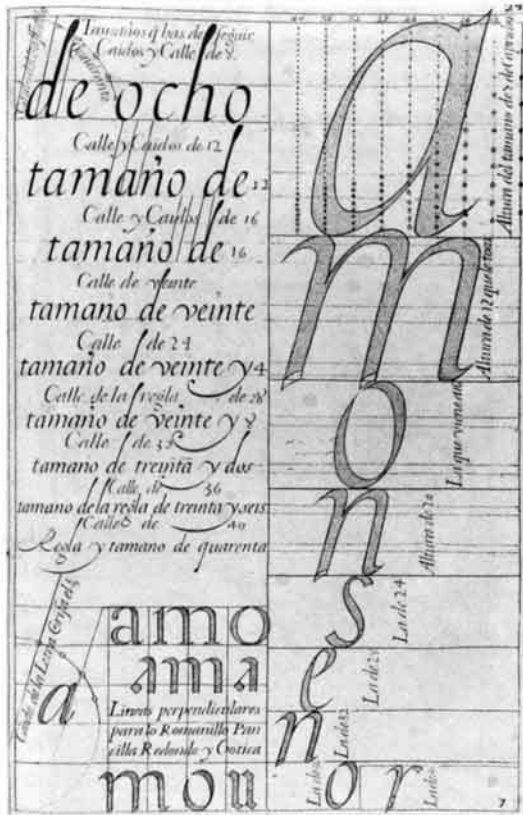 Tamaños q has de seguir
Caidos y Calle de 8.
de ocho
Calle y Caidos de 12
tamaño de 12
Calle y Caidos de 16
tamaño de 16
Calle de veinte
tamaño de veinte
Calle de 24
tamaño de veinte y 4
Calle de la regla de 28
tamaño de veinte y 8
Calle de 32
tamaño de treinta y dos
Calle de 36
tamano de la regla de treinta y seis
Calle de 40
Regla y tamano de quarenta
Caido de la Letra Grifa el
a
amo
ama
Lineas perpendiculares
para lo Romanillo Pan
cilla Redondo y Gotica
mou
a
Altura del tamano de 8 de
m
Altura de 12 que le toca
o
La que viene
n
Altura de 20
s
La de 24
e
La de 28
n
La de 32
o
La de
r
La de
7